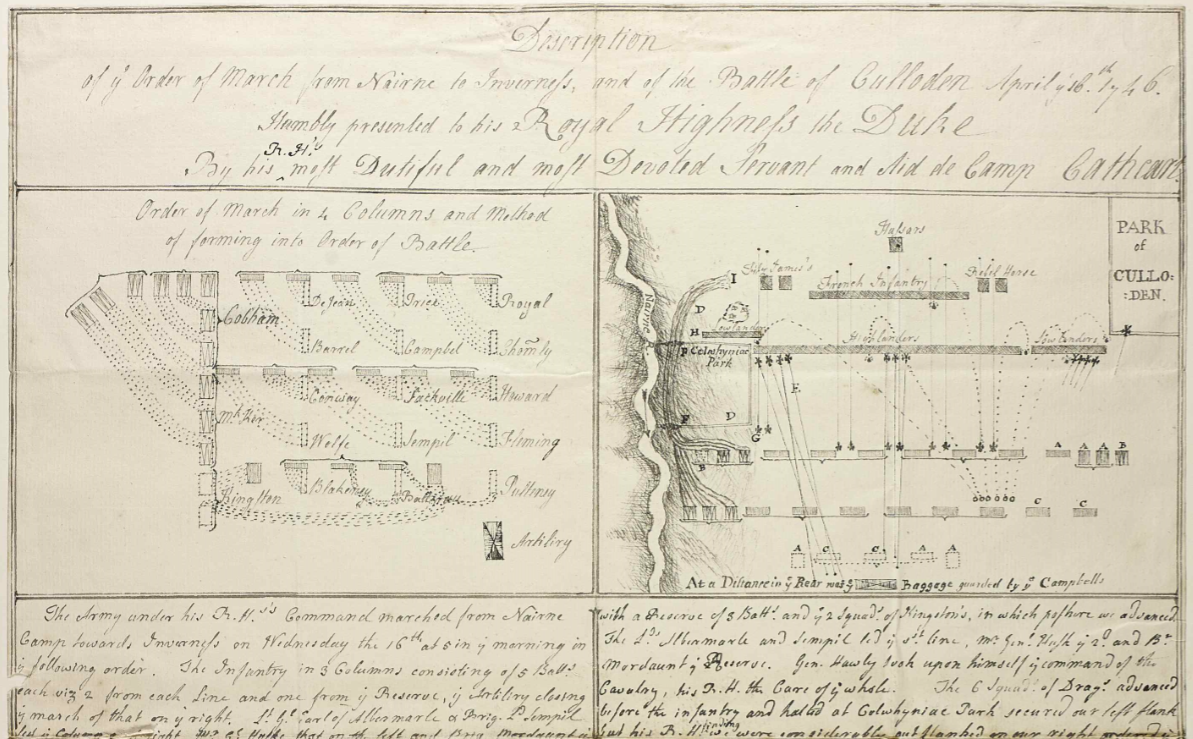 Description
of yͤ Order of March from Nairne to Inverness, and of the Battle of Culloden April yͤ 16.th 1746.
Humbly presented to his Royal Highness the Duke
R.H.s
By his most Dutiful and most Devoted Servant and Aid de Camp Cathcart.
Order of March in 4 Columns and Method
of forming into Order of Battle.
Cobham
DeJean
Price
Royal
Barrel
Campbel
Chomly
Conway
Sackville
Howard
Mk Ker
Wolfe
Sempil
Fleming
Kingston
Blakeney
Battereau
Pulteney
Artiliry
PARK
of
CULLO:
:DEN.
Husars
James's
French Infantry
Rebel Horse
Nairne
I
D
H
Lowlanders
Highlanders
Lowlanders
F Colwhyniac
Park
E
F
D
G
B
A
A
A
B
C
C
A
C
C
A
A
At a Distance in yͤ Rear was yͤ Baggage guarded by yͤ Campbells
The Army under his R.H.s Command marched from Nairne
Camp towards Inverness on Wednesday the 16th at 5 in yͤ morning in
yͤ following order. The Infantry in 3 Columns consisting of 5 Batts.
each viz 2 from each Line and one from yͤ Reserve, yͤ Artilery closing
yͤ march of that on yͤ right. Lt. G. Earl of Albermarle & Brig. Ld Sempil
that on the left and Brig. Mordaunt
with a Reserve of 3 Batts. and yͤ 2 Squads. of Kingston's, in which posture we advanced
The Lds Albermarle and Sempil led yͤ 1st line, Mr. Genl. Husk yͤ 2d. and Br.
Mordaunt yͤ Reserve. Gen. Hawly took upon himself yͤ command of the
Cavalry, his R.H. the Care of yͤ whole. The 6 Squads. of Drags. advanced
before the infantry and halted at Colwhyniac Park secured our left flank
finding
but his R.H. we were considerably outflanked on our right ordered